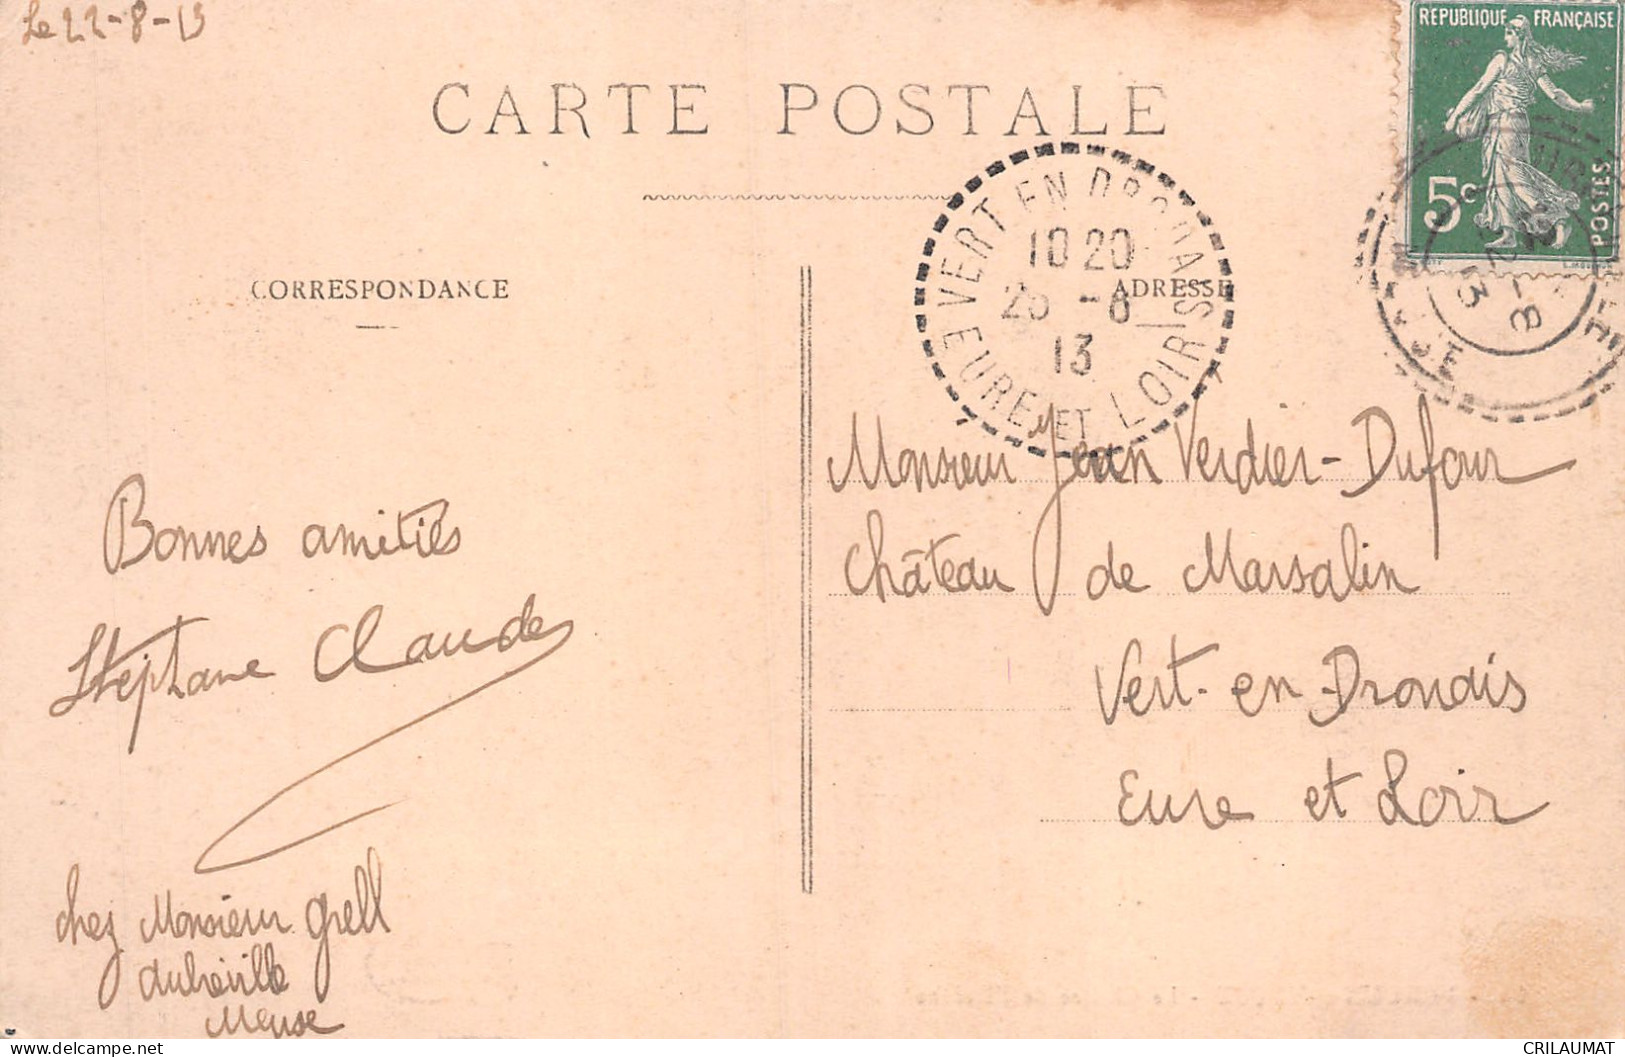 Le 22-8-13
CARTE POSTALE
RÉPUBLIQUE FRANÇAISE
5c
POSTES
VERT EN DROUAIS
10 20
13
EURE ET LOIR
CORRESPONDANCE
ADRESSE
Bonnes amitiés
Stéphane Claudes
chez Monsieur Grell
Aubréville
Meuse
Monsieur Jean Verdier-Dufour
Château de Marsalin
Vert-en-Drouais
Eure et Loir
delcampe.net
CRILAUMAT